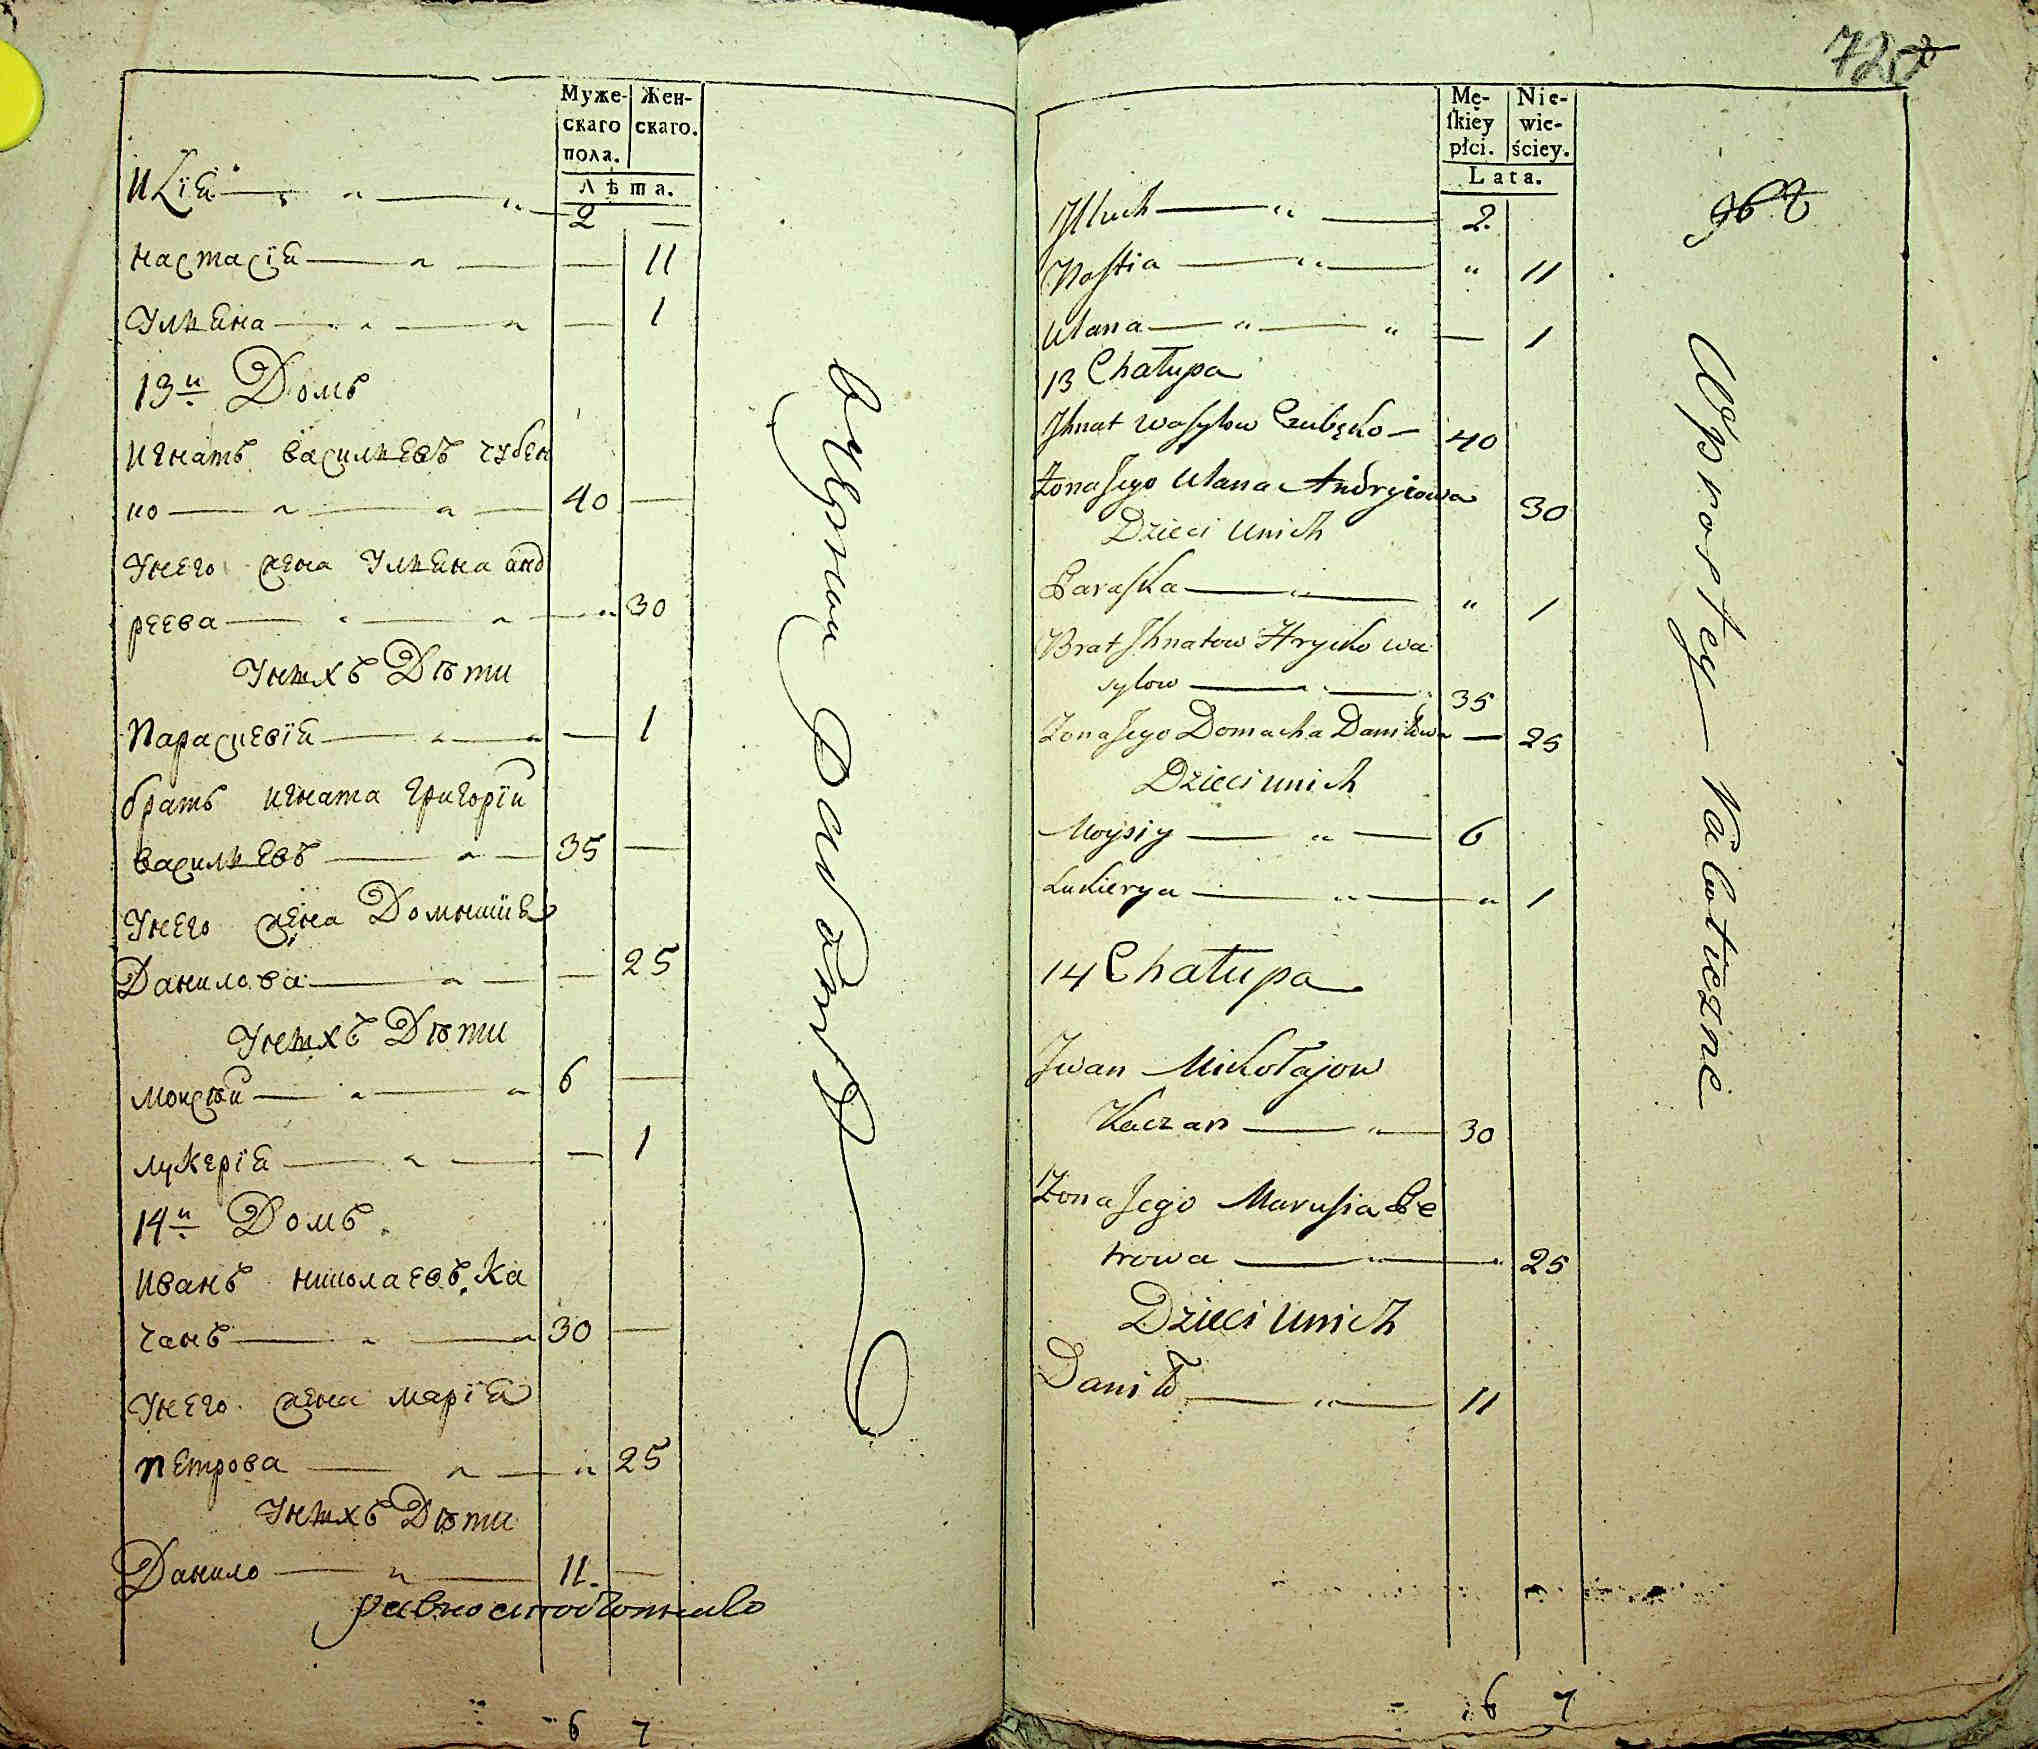 Муже-
скаго
пола.
Жен-
скаго.
Лѣта.
Илїя — " — " — 2 —
Настасїя — " — — 11
Ульяна — " — " — 1
13й Домъ
Игнатъ Васильевъ Чубен
ко — " — " — 40 —
У него жена Ульяна Анд
реева — " — " — " 30
У нихъ Дѣти
Параскевїя — " — " — 1
Братъ Игната Григорїй
Васильевъ — " — 35 —
У него жена Домникїя
Данилова — " — — 25
У нихъ Дѣти
Моисѣй — " — " 6 —
Лукерїя — " — — 1
14й Домъ.
Иванъ Николаевъ Ка
чанъ — " — " 30 —
У него жена Марїя
Петрова — " — " 25
У нихъ Дѣти
Данило — " — 11. —
6 7
720
Mę-
skiey
płci.
Nie-
wie-
ściey.
Lata.
Jlluch — " — 2.
Nastia — " — " 11
Ulana — " — " — 1
13 Chałupa
Jhnat Wasylow Czubęko — 40
Zona Jego Ulana Andryiowa 30
Dzieci u nich
Paraska — " — " 1
Brat Jhnatow Hrycko Wa
sylow — " — 35
Zona Jego Domacha Daniłowa — 25
Dzieci u nich
Moysiy — " — 6
Lukierya — " — " 1
14 Chałupa
Jwan Mikołajow
Kaczan — " — 30
Zona Jego Marusia Pe
trowa — " — " 25
Dzieci u nich
Daniło — " — 11
6 7